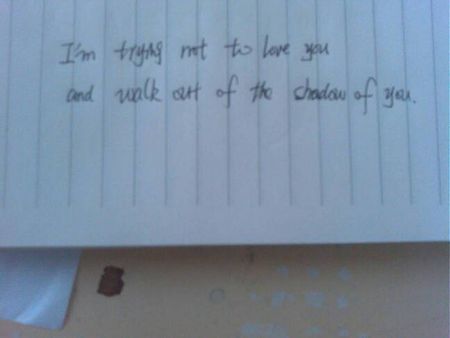 I'm trying not to love you
and walk out of the shadow of you.